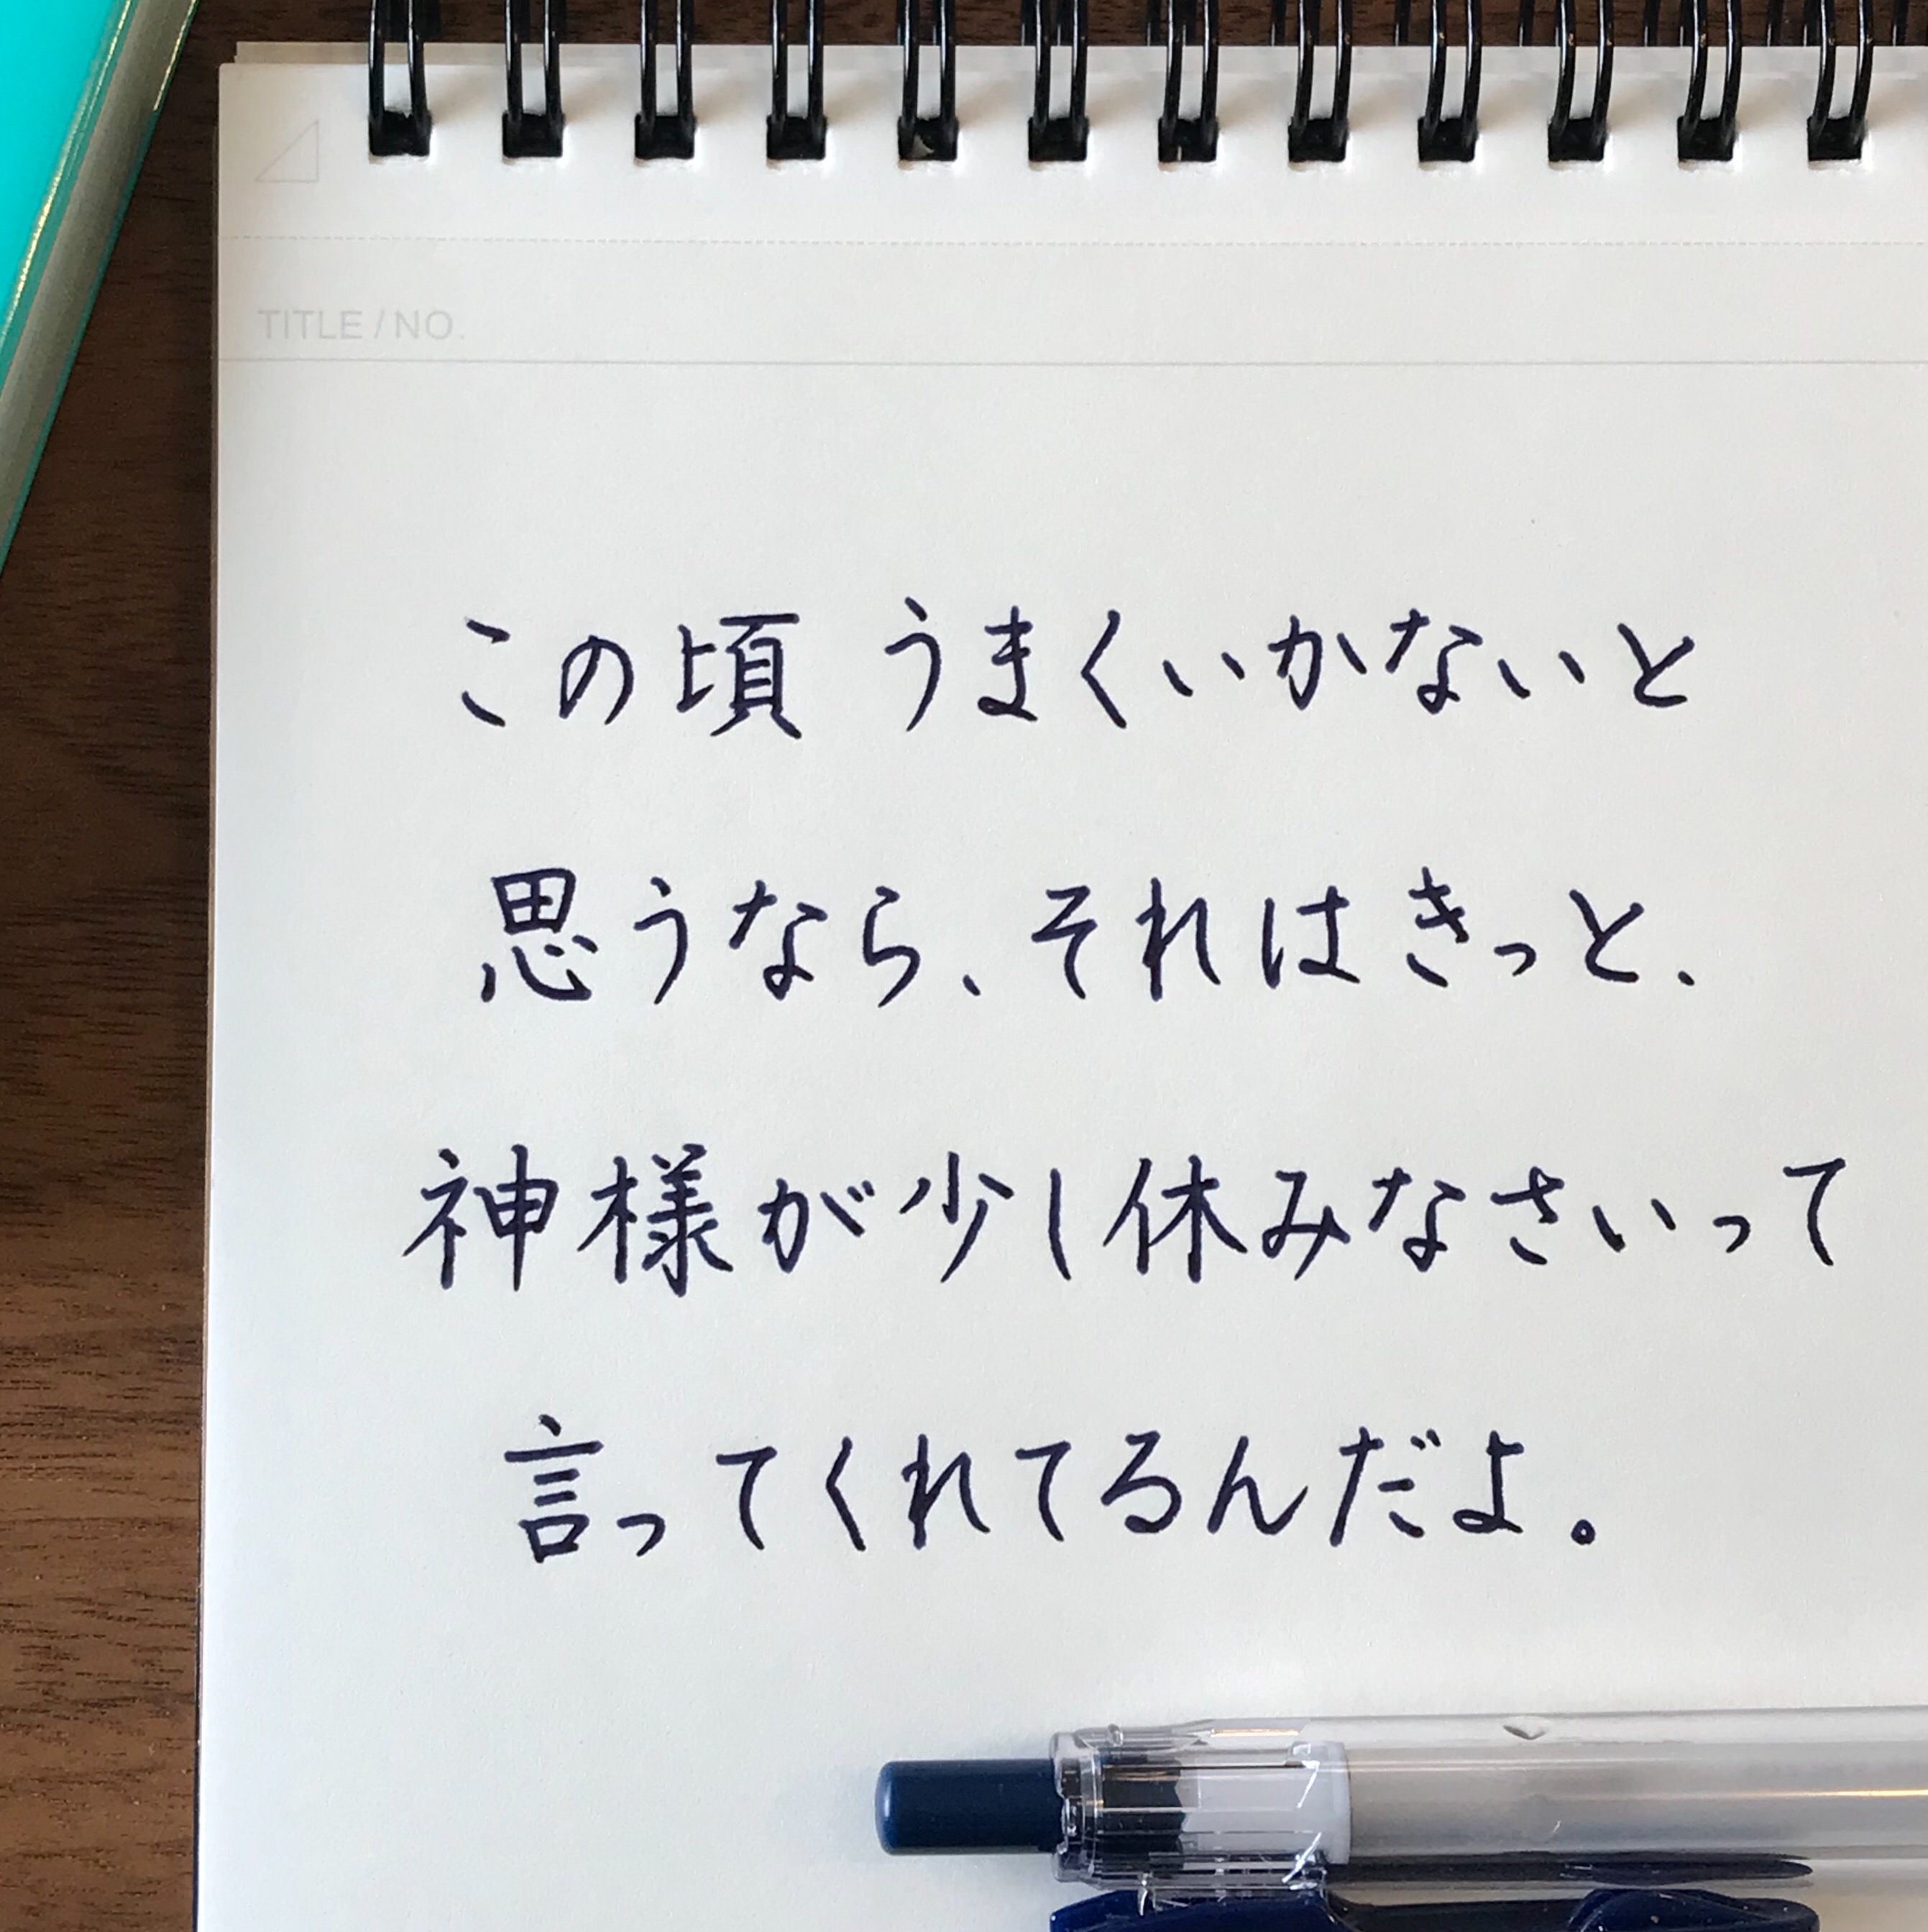 TITLE / NO.
この頃 うまくいかないと
思うなら、それはきっと、
神様が少し休みなさいって
言ってくれてるんだよ。